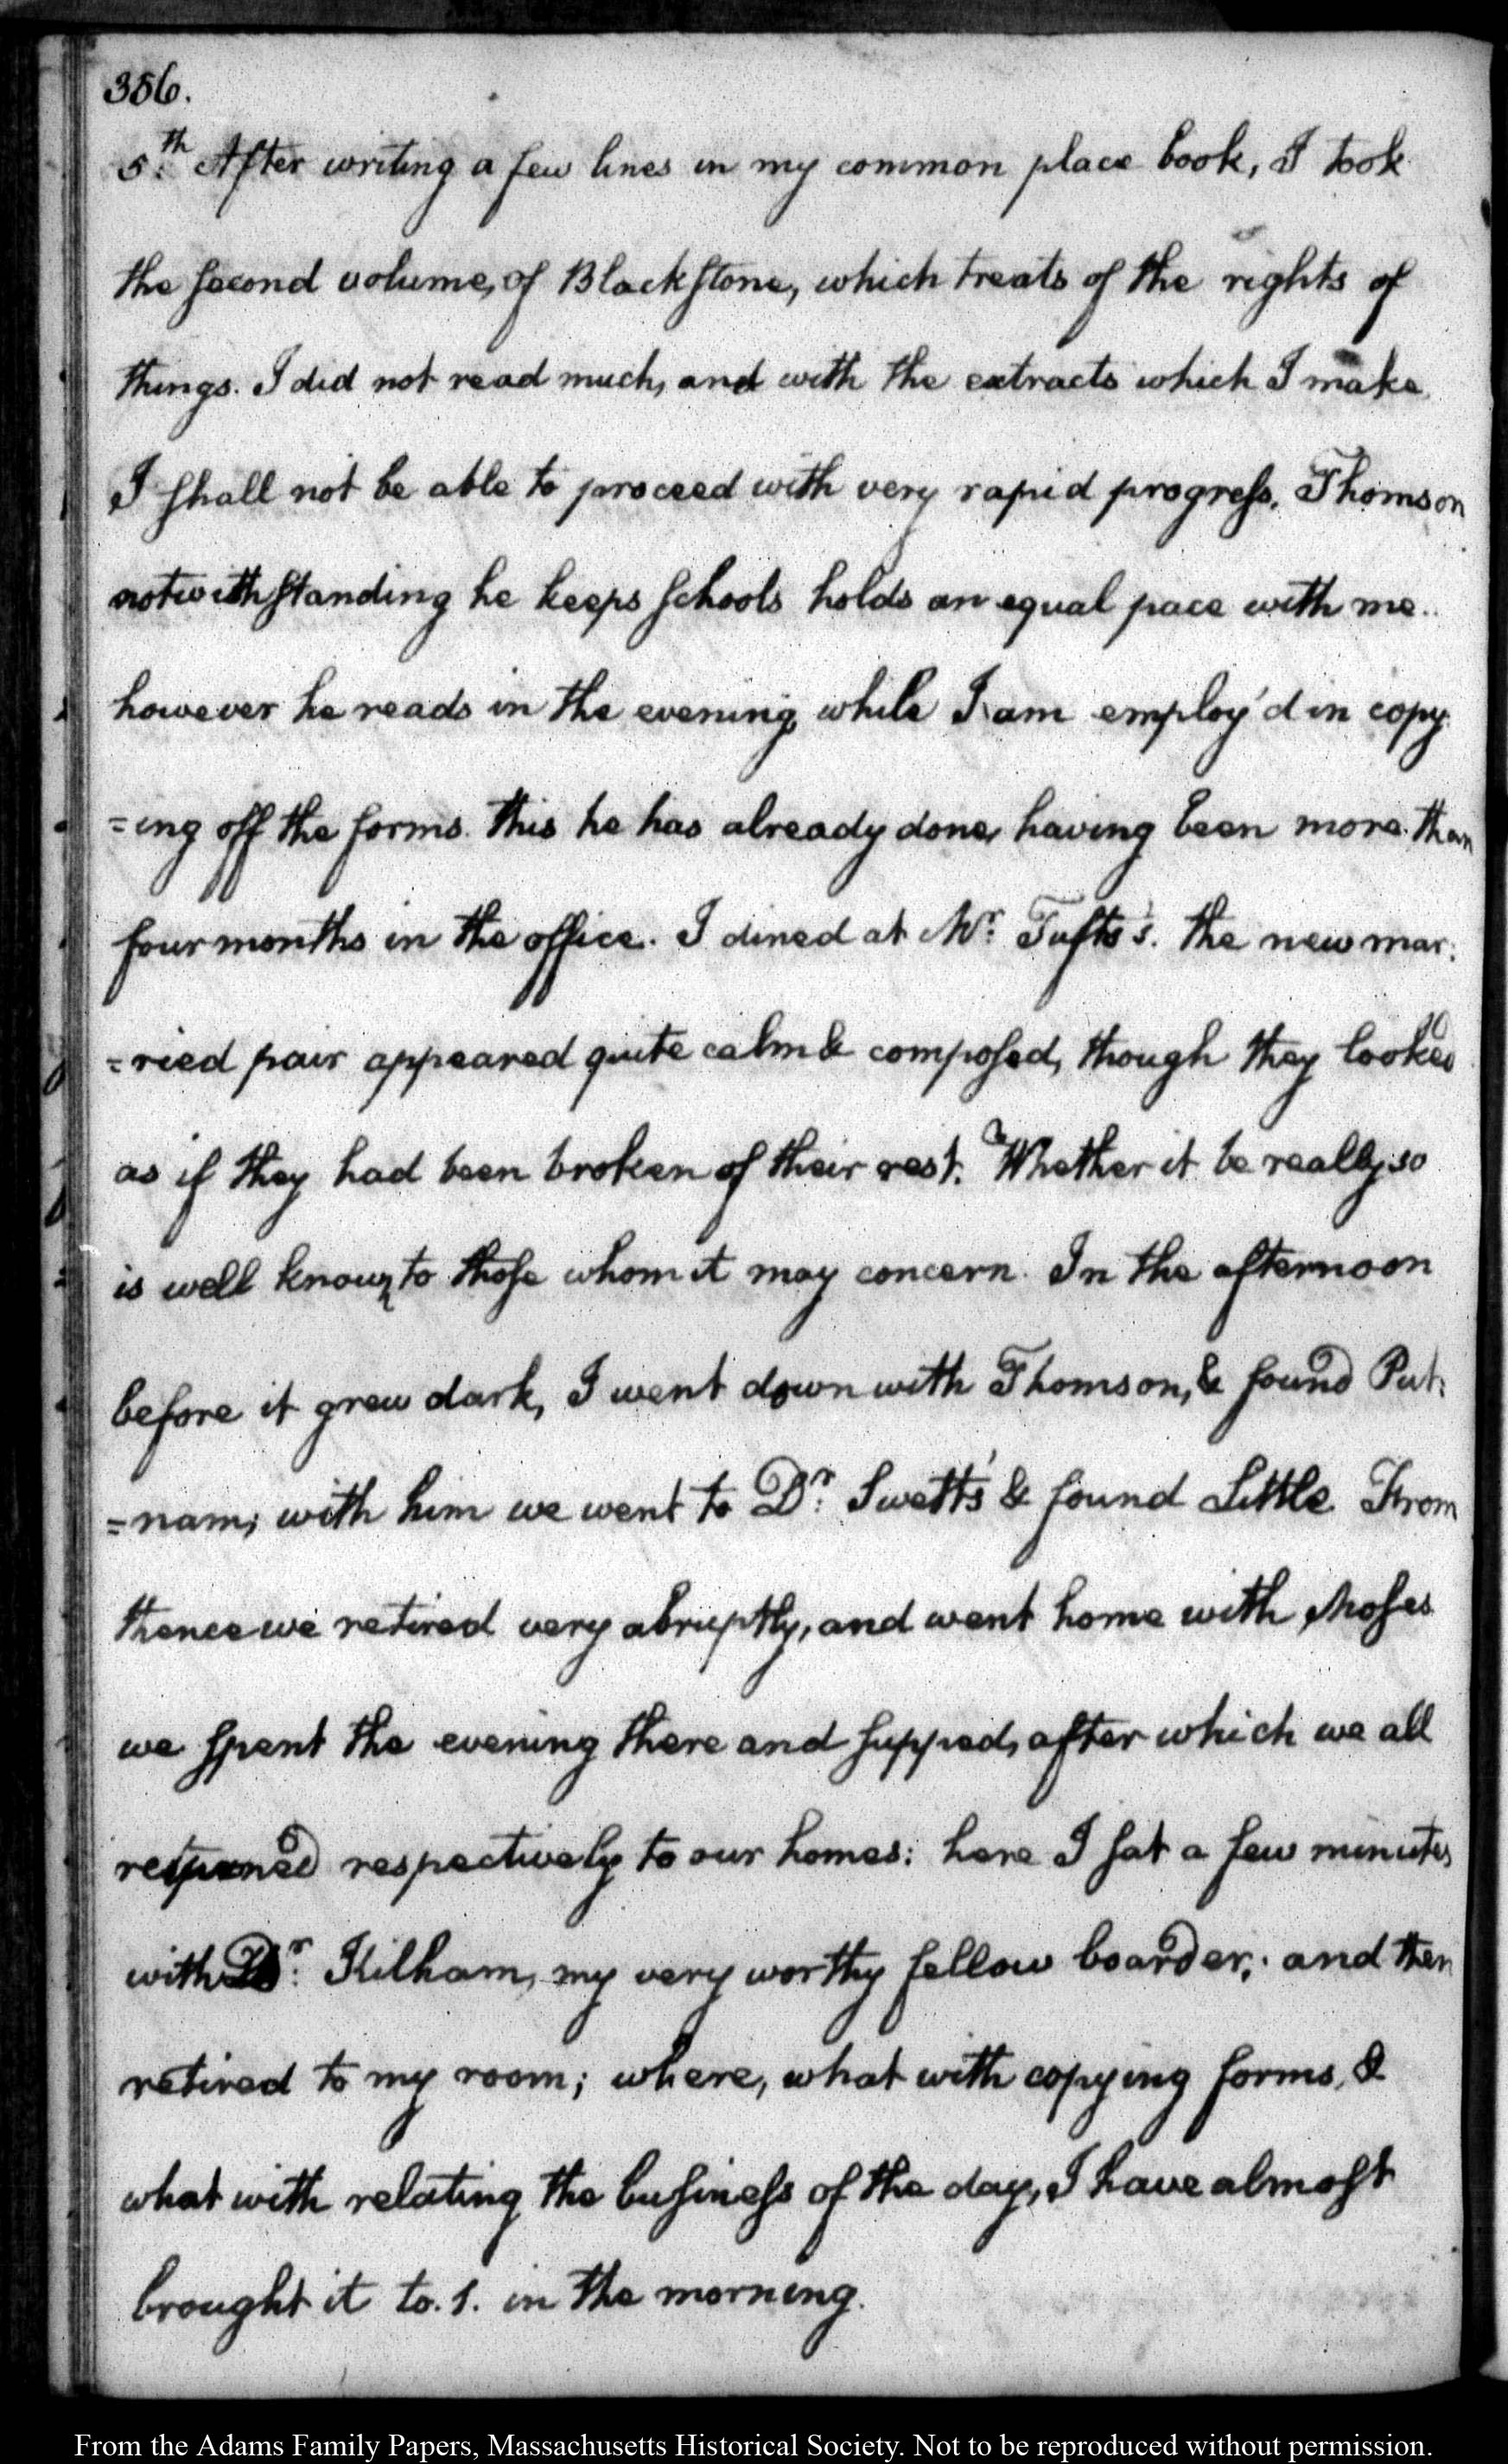 356.
5:th After writing a few lines in my common place book, I took
the second volume, of Blackstone, which treats of the rights of
things. I did not read much, and with the extracts which I make
I shall not be able to proceed with very rapid progress. Thomson
notwithstanding he keeps schools holds an equal pace with me.
however he reads in the evening, while I am employ'd in copy
=ing off the forms. this he has already done, having been more than
four months in the office. I dined at Mr: Tufts's. the new mar:
=ried pair appeared quite calm & composed, though they looked
as if they had been broken of their rest. Whether it be really so
is well known to those whom it may concern. In the afternoon
before it grew dark, I went down with Thomson, & found Put:
=nam; with him we went to Dr: Swett's & found Little From
thence we retired very abruptly, and went home with Moses
we spent the evening there and supped, after which we all
returned respectively to our homes: here I sat a few minutes
with Dr: Kilham, my very worthy fellow boarder; and then
retired to my room; where, what with copying forms, &
what with relating the business of the day, I have almost
brought it to. 1. in the morning.
From the Adams Family Papers, Massachusetts Historical Society. Not to be reproduced without permission.